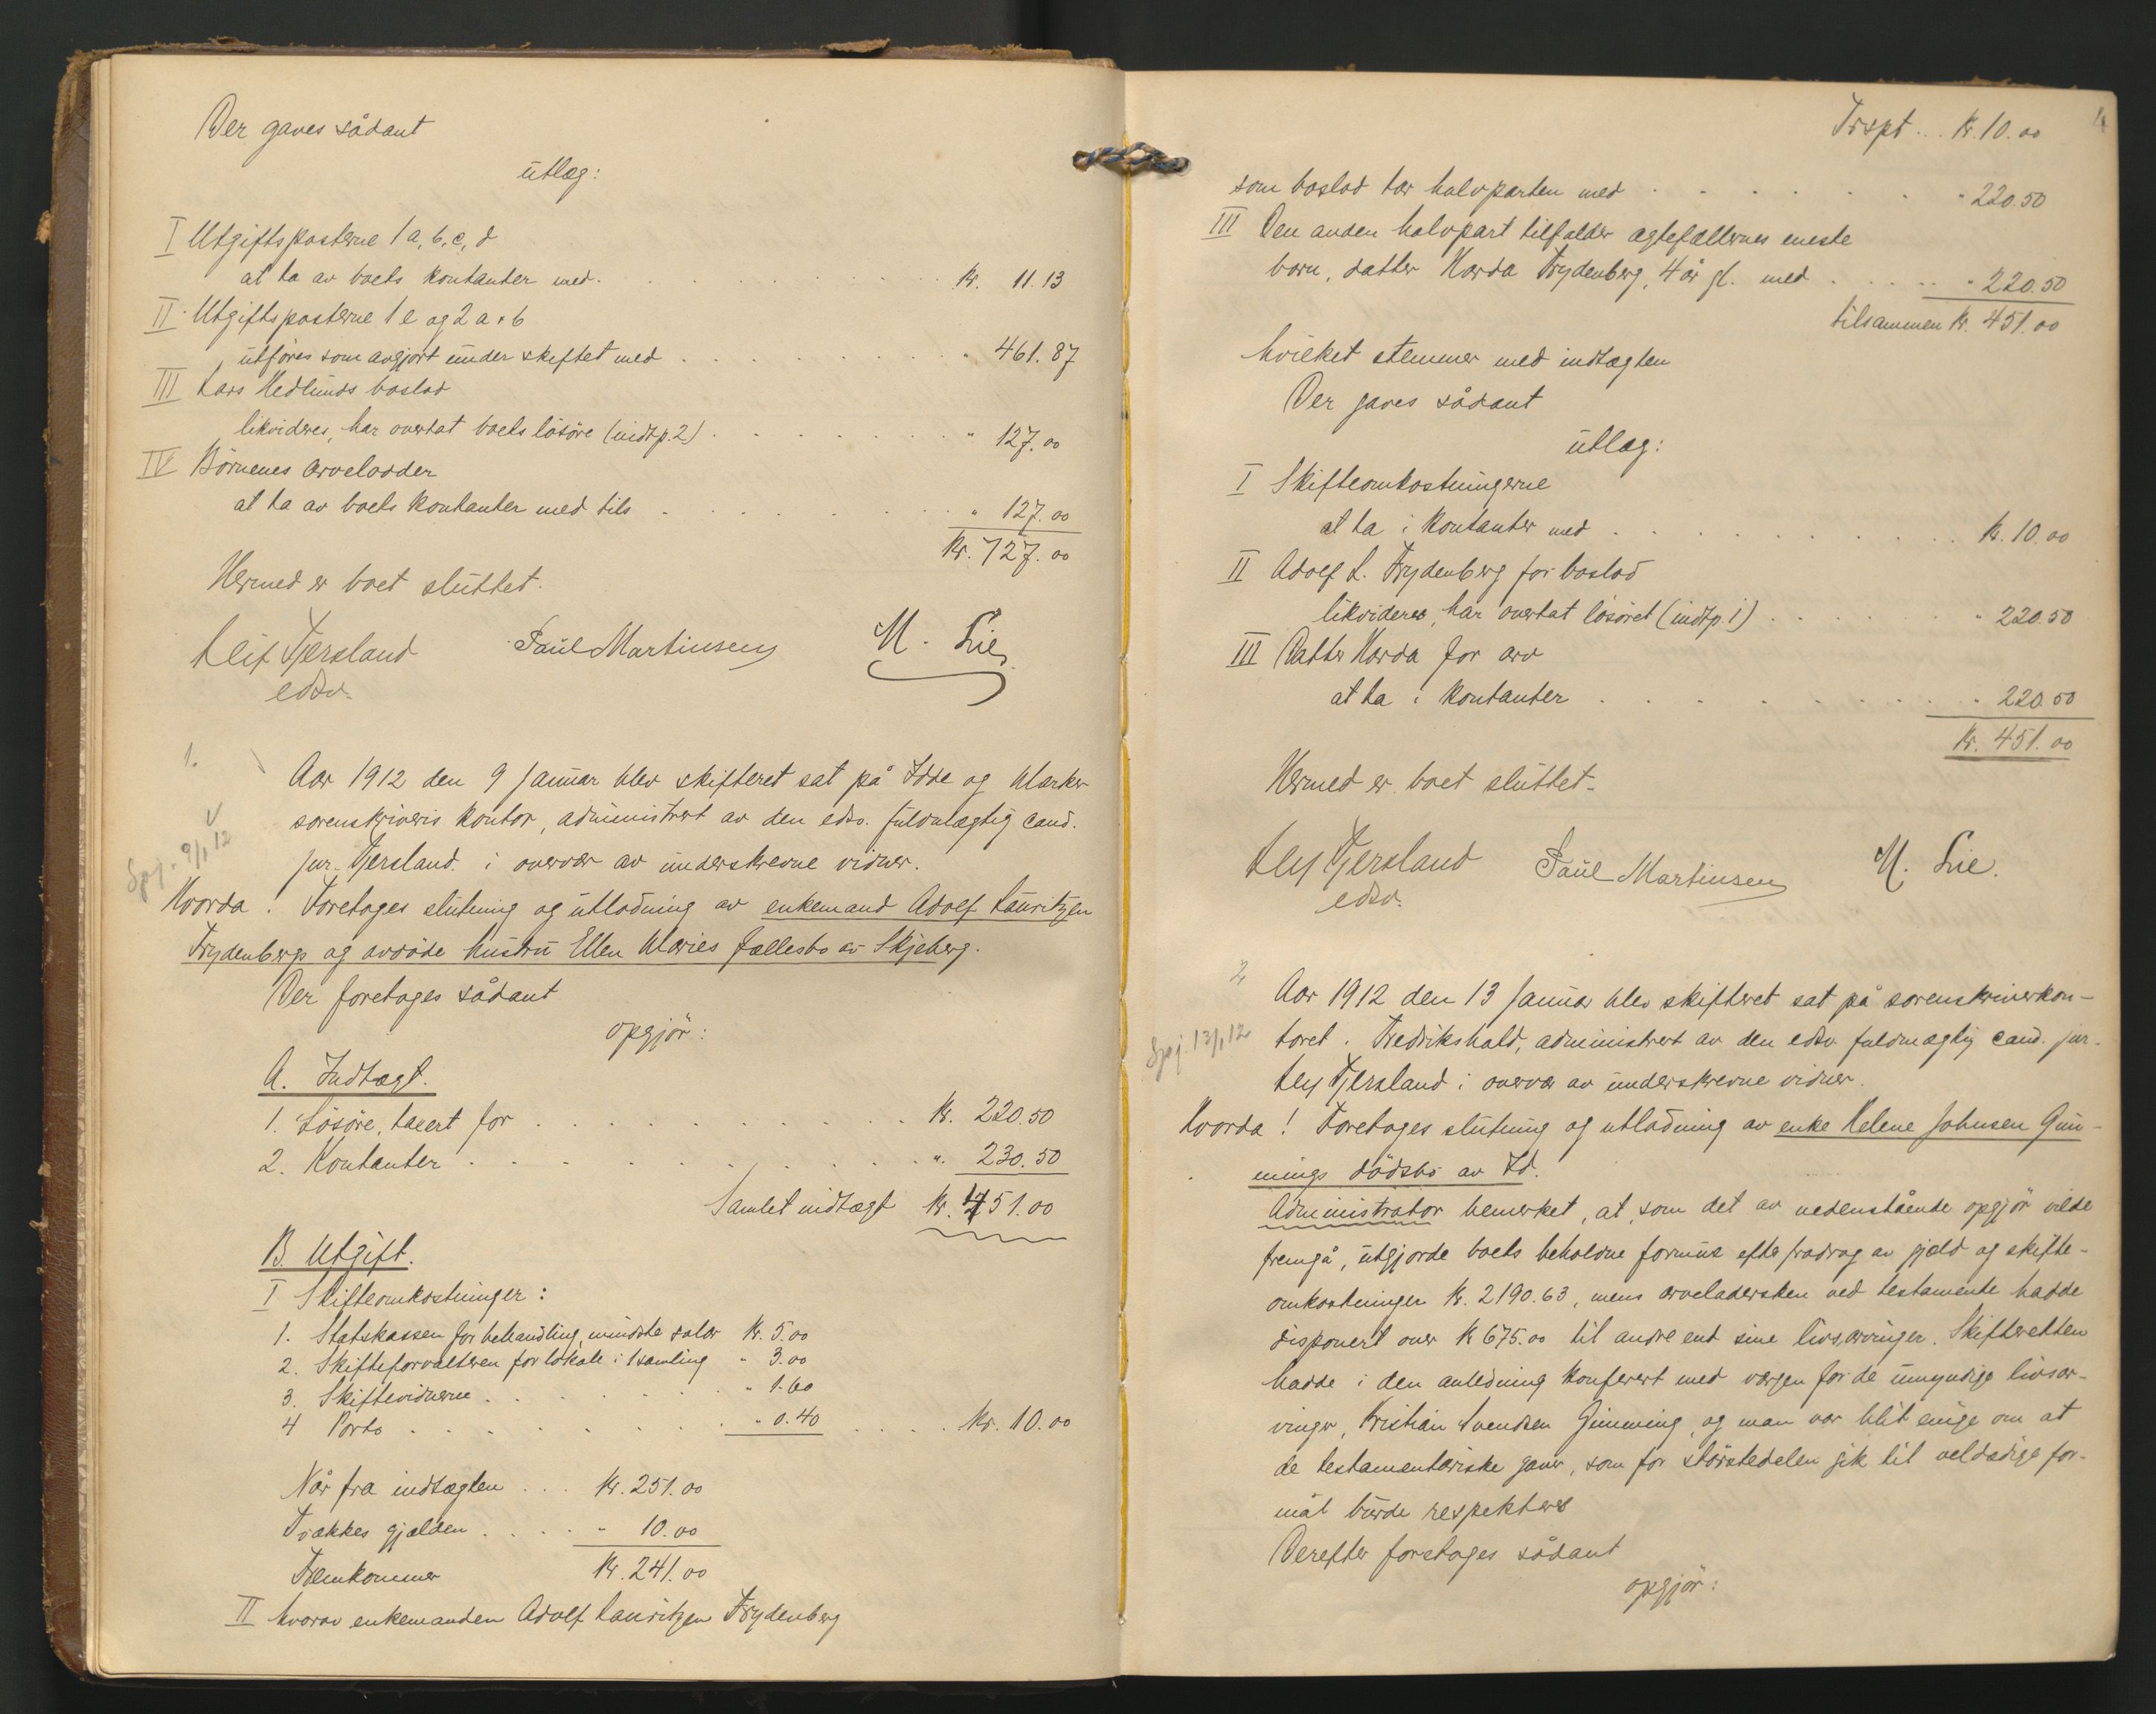 Der gaves sådant
utlæg:
I Utgiftsposterne 1 a, b, c, d
at ta av boets kontanter med. kr. 11.13
II Utgiftsposterne 1 e og 2 a + b
utföres som avgjort under skiftet med " 461.87
III Lars Hedlunds boslod
likvideres, har overtat boets lösöre (indtp. 2) " 127.00
IV Börnenes arvelodder
at ta av boets kontanter med tils " 127.00
Kr. 727.00
Hermed er boet sluttet.
Leif Tjersland Paul Martinsen M. Lie
edsv.
1.
Aar 1912 den 9 Januar blev skifteret sat på Idde og Marker
sorenskriveris kontor, administrert av den edsv. fuldmægtig cand.
Spj. 9/1 12
jur. Tjersland i overvær av underskrevne vidner.
Hvorda! Foretages slutning og utlodning av enkemand Adolf Lauritzen
Frydenbergs og avdöde hustru Ellen Maries fællesbo av Skjeberg.
Der foretages sådant
opgjör:
A. Indtægt.
1. Lösöre, taxert for kr. 220.50
2. Kontanter " 230.50
Samlet indtægt kr. 451.00
B. Utgift.
I Skifteomkostninger:
1. Statskassen for behandling, mindste salær kr. 5.00
2. Skifteforvalteren for lokale i 1 samling " 3.00
3. Skiftevidnerne " 1.60
4 Porto " 0.40 kr. 10.00
Når fra indtægten kr. 251.00
Trækkes gjælden " 10.00
Fremkommer kr. 241.00
II hvorav enkemanden Adolf Lauritzen Frydenberg
4
Trspt kr. 10.00
som boslod tar halvparten med " 220.50
III Den anden halvpart tilfalder ægtefællernes eneste
barn, datter Harda Frydenberg, 4 år gl. med " 220.50
tilsammen kr. 451.00
hvilket stemmer med indtægten
Der gaves sådant
utlæg:
I Skifteomkostningerne
at ta i kontanter med kr. 10.00
II Adolf L. Frydenberg for boslod
likvideres, har overtat lösöret (indtp. 1) " 220.50
III Datter Harda for arv
at ta i kontanter " 220.50
kr. 451.00
Hermed er boet sluttet.
Leif Tjersland Paul Martinsen M. Lie.
edsv.
2
Aar 1912 den 13 Januar blev skifteret sat på sorenskriverkon-
Spj. 13/1 12
toret i Fredrikshald, administrert av den edsv. fuldmægtig cand. jur.
Leif Tjersland i overvær av underskrevne vidner.
Hvorda! Foretages slutning og utlodning av enke Helene Johnsen Gim-
mings dödsbo av Id.
Administrator bemerket, at, som det av nedenstående opgjör vilde
fremgå, utgjorde boets beholdne formue efter fradrag av gjæld og skifte-
omkostninger kr. 2190.63, mens arveladersken ved testamente hadde
disponert over kr 675.00 til andre end sine livsarvinger. Skifteretten
hadde i den anledning konferert med værgen for de umyndige livsar-
vinger, Kristian Svendsen Gimming, og man var blit enige om at
de testamentariske gaver, som for störstedelen gik til veldædige for-
mål burde respekteres
Derefter foretages sådant
opgjör: